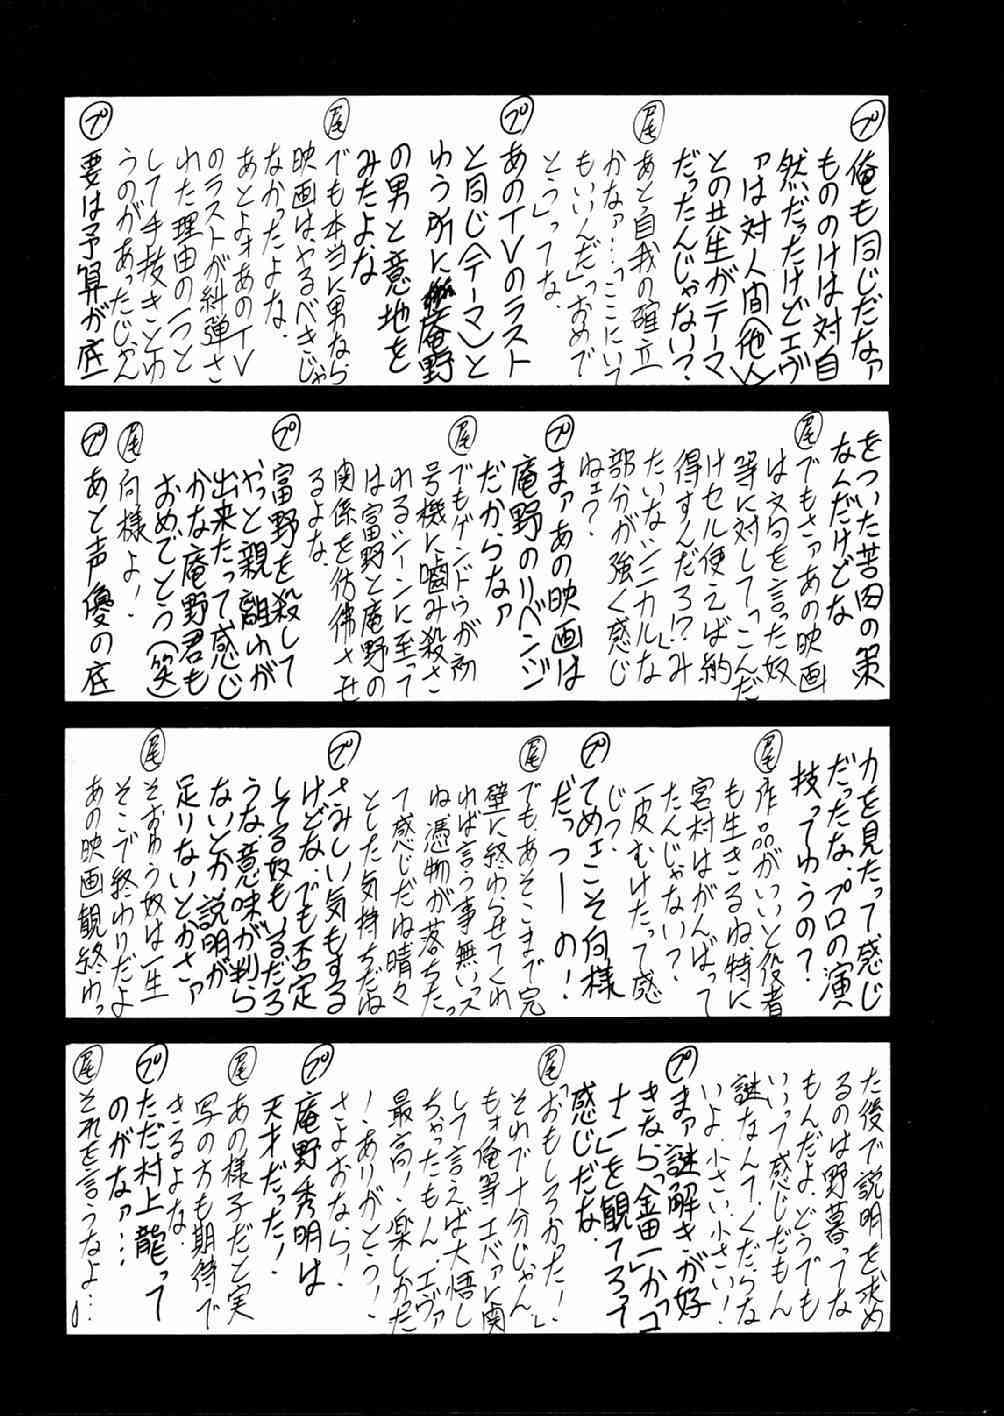 プ 俺も同じだなァ
もののけは対自
然だったけどエヴ
ァは対人間(他人)
との共生がテーマ
だったんじゃない?
尾 あと自我の確立
かなァ…「ここにいて
もいいんだ」「おめで
とう」ってな。
プ あのTVのラスト
と同じ(テーマ)と
ゆう所に庵野
の男と意地を
みたよな
尾 でも本当に男なら
映画はやるべきじゃ
なかったよな。
あとよォあのTV
のラストが糾弾さ
れた理由の一つと
して手抜きとゆ
うのがあったじゃん
プ 要は予算が底
をついた苦肉の策
なんだけどな
尾 でもさァあの映画
は文句を言った奴
等に対して「こんだ
けセル使えば納
得すんだろ!?」み
たいなシニカルな
部分が強く感じ
ねェ?
プ まァあの映画は
庵野のリベンジ
だからなァ
尾 でもゲンドウが初
号機に噛み殺さ
れるシーンに至って
は富野と庵野の
関係を彷彿させ
るよな。
プ 富野を殺して
やっと親離れが
出来たって感じ
かな庵野君も
おめでとう(笑)
尾 何様よ!
プ あと声優の底
力を見たって感じ
だったな。プロの演
技ってゆうの?
尾 作品がいいと役者
も生きるね、特に
宮村はがんばって
たんじゃない?
一皮むけたって感
じ?
プ てめェこそ何様
だっつーの!
尾 でも、あそこまで完
璧に終わらせてくれ
れば言う事無いっス
ね憑物が落ちたっ
て感じだね晴々
とした気持ちだね
プ さみしい気もする
けどな。でも否定
してる奴もいるだろ
うな、意味が判ら
ないとか説明が
足りないとかさァ
尾 そおゆう奴は一生
そこで終わりだよ
あの映画観終わっ
た後で説明を求め
るのは野暮ってな
もんだよ、どうでも
いいって感じだもん
謎なんて。くだらな
いよ、小さい小さい!
プ まァ謎解きが好
きなら「金田一」か「コ
ナン」を観てろって
感じだな。
尾 「おもしろかった!」
それで十分じゃん。
もォ俺等エバァに関
して言えば大悟し
ちゃったもん、エヴァ
最高!楽しかった
!ありがとう!
さよおなら!
プ 庵野秀明は
天才だった!
尾 あの様子だと実
写の方も期待で
きるよな。
プ ただ村上龍って
のがなァ…
尾 それを言うなよ…